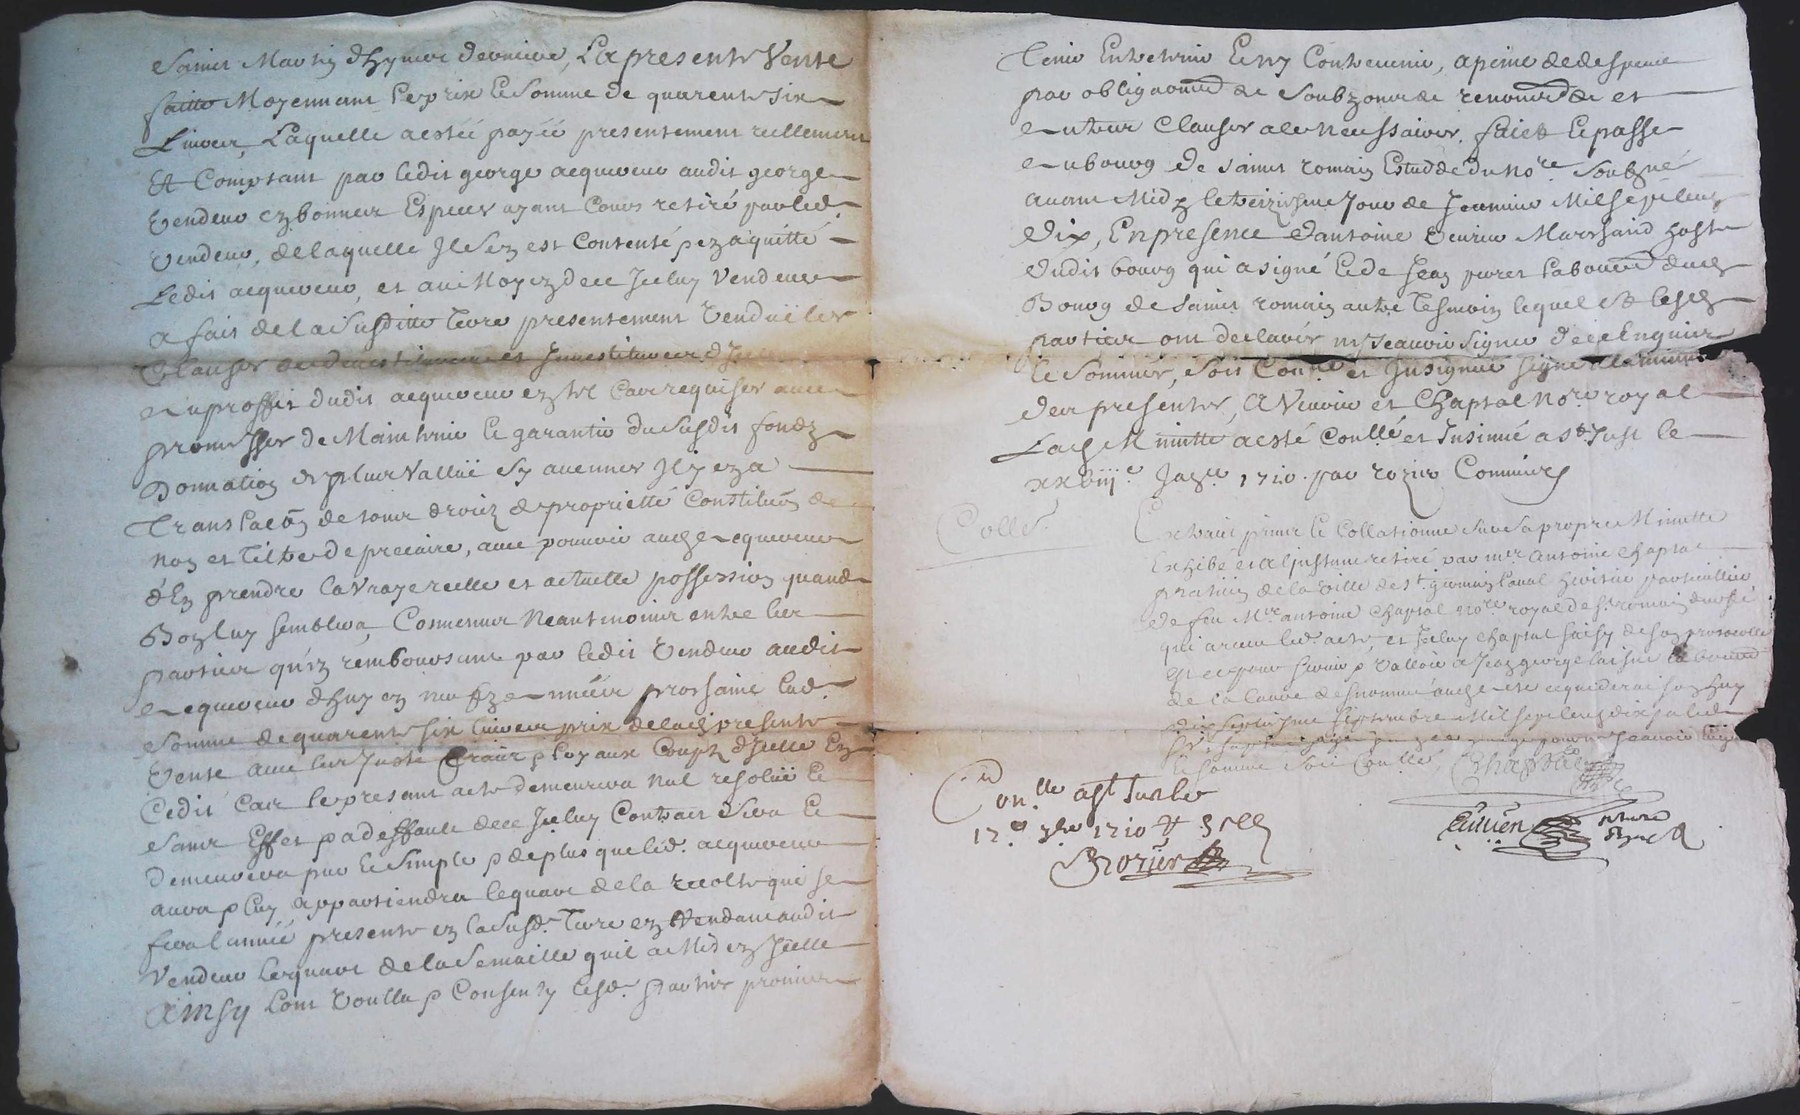 Sainct Martin d'hyver derniere, La presente Vente
faitte Moyennant le prix & Somme de quarente six
Livres, Laquelle a estée payée presentement reellement
Et Comptant par ledit george acquereur audit george
Vendeur en bonnes Especes ayant Cours retiré par led.
Vendeur, de laquelle Il s'en est Contenté & en a quitté
Ledit acquereur, et au Moyen de ce Iceluy Vendeur
a fait de la Susditte Terre presentement Venduë les
Clauses de demestitures et Inuestitures d'
au proffit dudit acquereur en tel Cas requises auec
promesses de Maintenir & garantir du Susdit fondz
Donnation de plus Valluë sy aucunes Il y en a
Translaon de tous droitz de proprietté Constituon de
nom et Tiltre de precaire, auec pouuoir aud. acquereur
d'En prendre la Vraye reelle et actuelle possession quand
Bon luy semblera, Conuenus Neantmoins entre les
parties qu'en remboursant par ledit Vendeur audit
acquereur d'huy en neufz années prochaine lad.
Somme de quarente six Liures prix de lad. presente
Vente auec les Justes fraix & loyaux Coupz d'Icelle En
Cedit Cas le present acte demeurera nul resolüe &
sans Effet & a deffault de ce Iceluy Contract Sera &
demeurera pur & Simple & de plus que led. acquereur
aura & luy appartiendra le quart de la recolte qui se
fera l'année presente en la Susd. Terre en Rendant audit
Vendeur le quart de la Semaille qu'il a Mis en Icelle
Ainsy L'ont Voullu & Consenty lesd. parties promis
Tenir Entretenir & N'y Contreuenir, a peine de despens
par obligaon de Soubzon de renonon de et
autres Clauses a ce Necessaires, faict & passe
au bourg de Sainct romain Estude du Nore. Soubzné
auant Midy le treiziesme Jour de Januier Mil sept Cens
dix, En presence d'antoine Marchand hoste
dudit bourg qui a signé & de Jean laboureur dud.
Bourg de Sainct romain autre Tesmoin lequel & lesd.
parties ont declarés ny Scauoir Signer de ce Enquis
& Sommés, Soit Conlle. et Insignué signé a la minute
des presentes, et Chaptal Nore. royal
Lad. Minutte a esté Conllé et Insinué a St. Just le
xxviiie. Janer. 1710. par rozier Commis
Collé.
Extraict prins & Collationne sur sa propre Minutte
Exhibé et a l'Instant retiré par mer Antoine Chaptal
praticien de la Ville de St. heritier particullier
de feu Mre antoine Chaptal Nore. royal de St. romain
qui a receu led. acte, et Iceluy Chaptal Saisy de son protocolle
Et ce pour Seruir & Valloir a Jean george laisné laboureur
ce requiderant huy
dix Septiesme Septembre Mil Sept Cens dix
& sommé Soit Conllé Chaptal
Conlle a St Just le
17e. 7bre 1710
Rozier